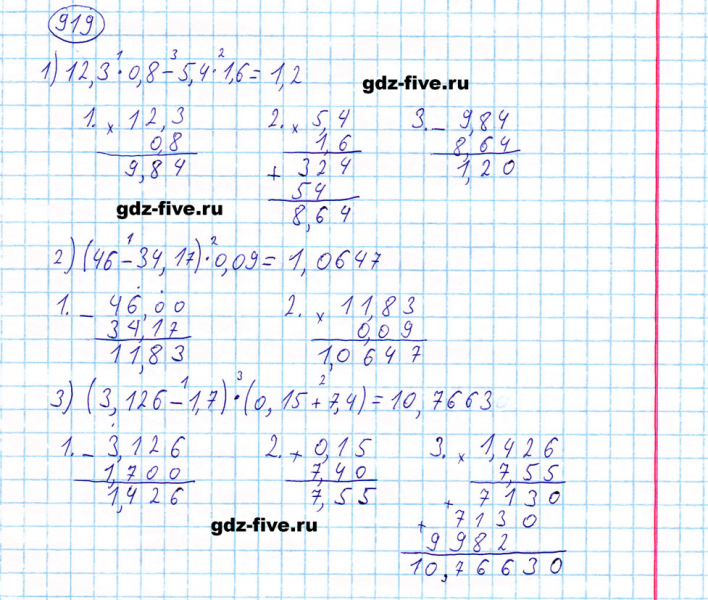 919
1) 12,3 · 0,8 - 5,4 · 1,6 = 1,2
1 3 2
gdz-five.ru
1. × 12,3
0,8
9,84
2. × 5,4
1,6
+ 324
54
8,64
3. - 9,84
8,64
1,20
gdz-five.ru
2) (46 - 34,17) · 0,09 = 1,0647
1 2
1. - 46,00
34,17
11,83
2. × 11,83
0,09
1,0647
3) (3,126 - 1,7) · (0,15 + 7,4) = 10,7663
1 3 2
1. - 3,126
1,700
1,426
2. + 0,15
7,40
7,55
3. × 1,426
7,55
+ 7130
+ 7130
9982
10,76630
gdz-five.ru